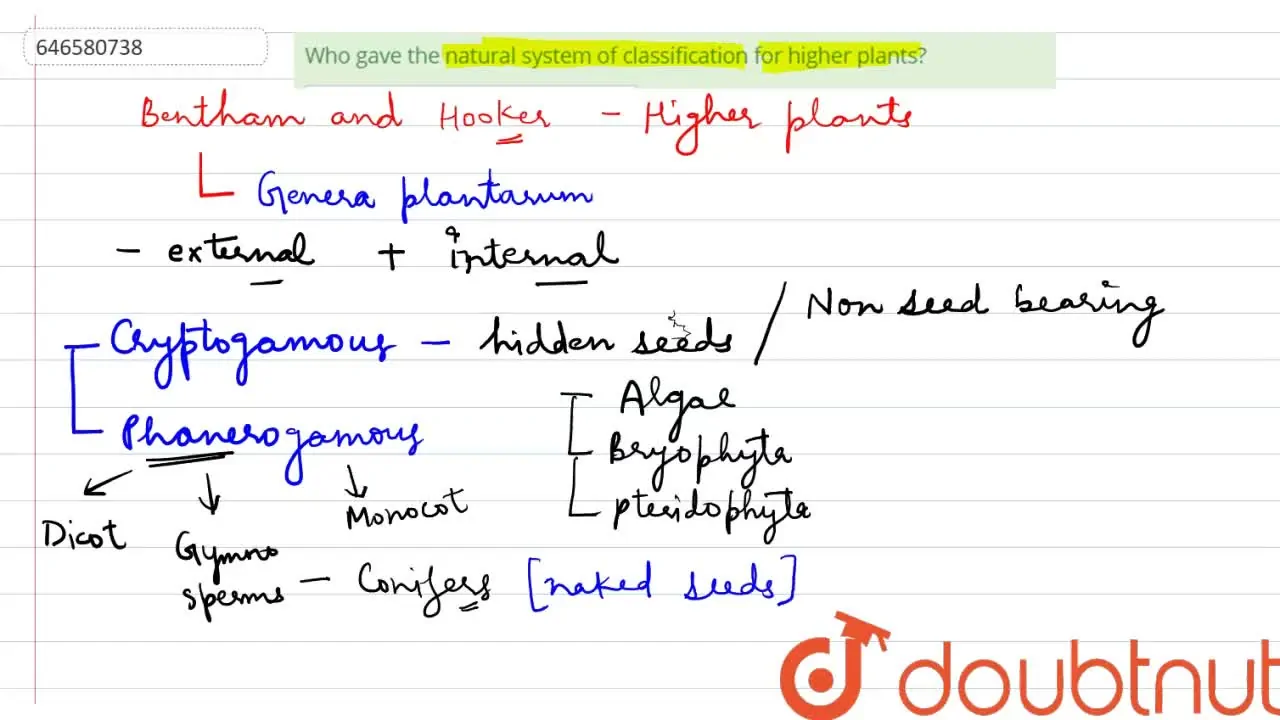 646580738
Who gave the natural system of classification for higher plants?
Bentham and Hooker - Higher plants
Genera plantarum
- external + internal
Cryptogamous - hidden seeds / Non seed bearing
Phanerogamous
Algae
Bryophyta
pteridophyta
Dicot
Gymno
sperms - Conifers [naked seeds]
Monocot
doubtnut